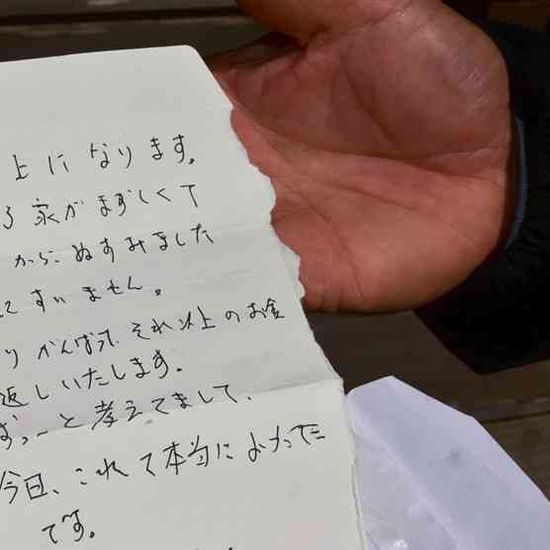 上になります。
る家がまずしくて
からにぬすみました
てすいません。
りがんばってそれ以上のお金
返しいたします。
ずっーと考えてまして、
今日、これで本当によかった
です。